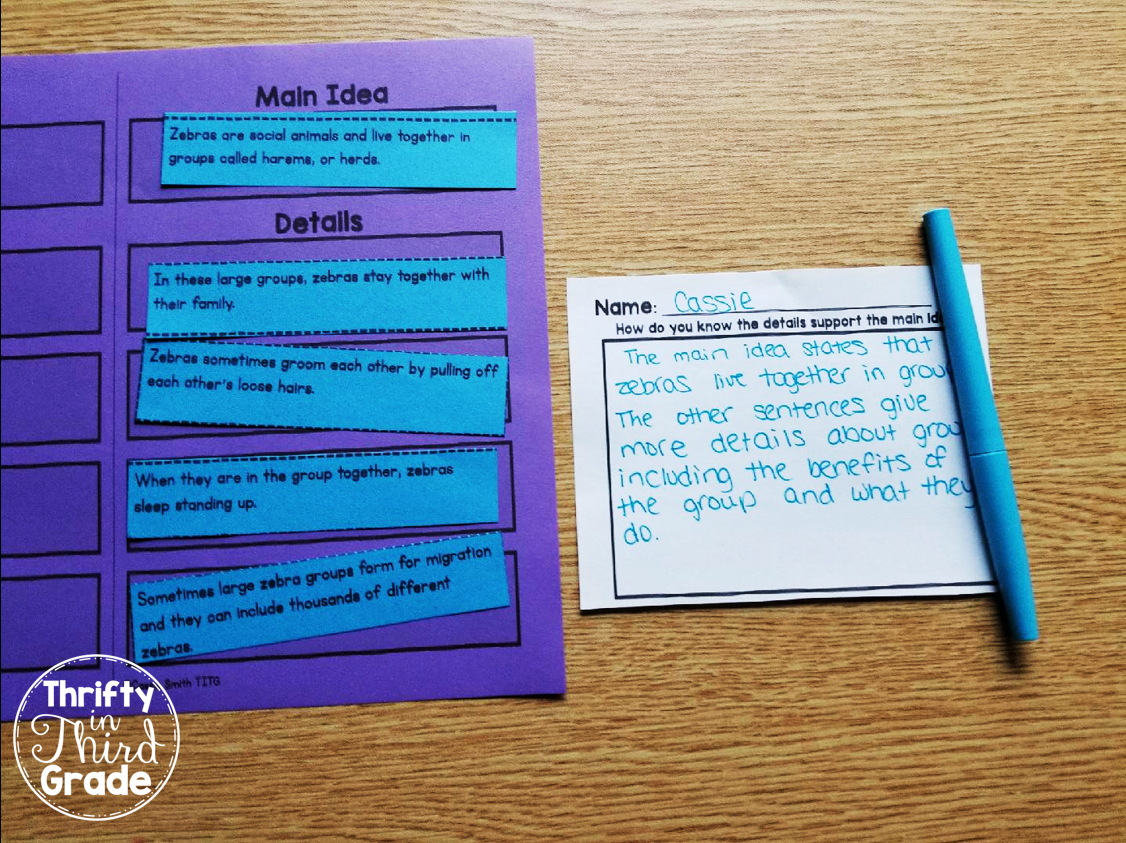 Main Idea
Zebras are social animals and live together in
groups called harems, or herds.
Details
In these large groups, zebras stay together with
their family.
Zebras sometimes groom each other by pulling off
each other's loose hairs.
When they are in the group together, zebras
sleep standing up.
Sometimes large zebra groups form for migration
and they can include thousands of different
zebras.
Smith TITG
Name: Cassie
How do you know the details support the main
The main idea states that
zebras live together in
The other sentences give
more details about
including the benefits of
the group and what they
do.
Thrifty
in
Third
Grade